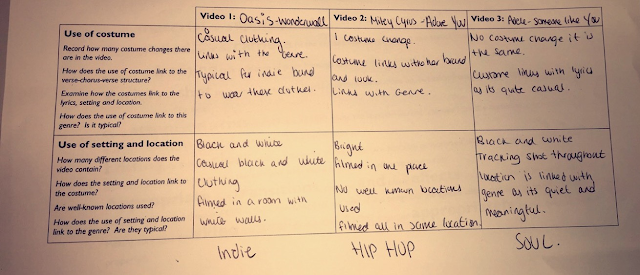 Video 1: Oasis - Wonderwall
Video 2: Miley Cyrus - Adore You
Video 3: Adele - Someone like You
Use of costume
Record how many costume changes there
are in the video.
How does the use of costume link to the
verse-chorus-verse structure?
Examine how the costumes link to the
lyrics, setting and location.
How does the use of costume link to this
genre? Is it typical?
Casual clothing.
Links with the genre.
Typical for indie band
to wear these clothes.
1 costume change.
Costume links with her brand
and look.
Links with genre.
No costume change it is
the same.
links with lyrics
as its quite casual.
Use of setting and location
How many different locations does the
video contain?
How does the setting and location link to
the costume?
Are well-known locations used?
How does the use of setting and location
link to the genre? Are they typical?
Black and white
Casual black and white
clothing
filmed in a room with
white walls.
Bright
filmed in one place
No well known locations
used
filmed all in same location.
Black and white
Tracking shot throughout
location is linked with
genre as its quiet and
meaningful.
Indie
HIP HOP
SOUL.